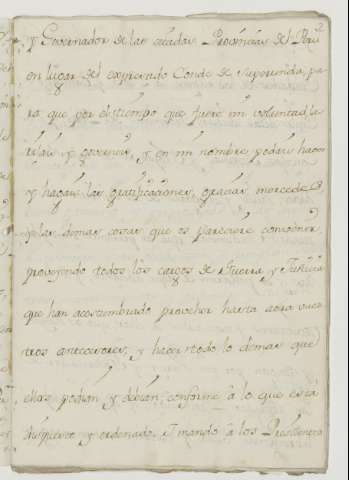 2
y Governador de las citadas Provincias del Perù
en lugar del expresado Conde de Superunda, pa
ra que por el tiempo que fuere mi voluntad, la
rijais y governeis, y en mi nombre podais hacer
y hagais las gratificaciones, gracias, mercedes
y las demas cosas que os pareciere combenir
proveyendo todos los cargos de Guerra, y Justicia
que han acostumbrado proveher hasta aora vues
tros antecesores, y hacer todo lo demas que
ellos podian y debian, conforme à lo que està
dispuesto y ordenado. Y mando à los Presidentes